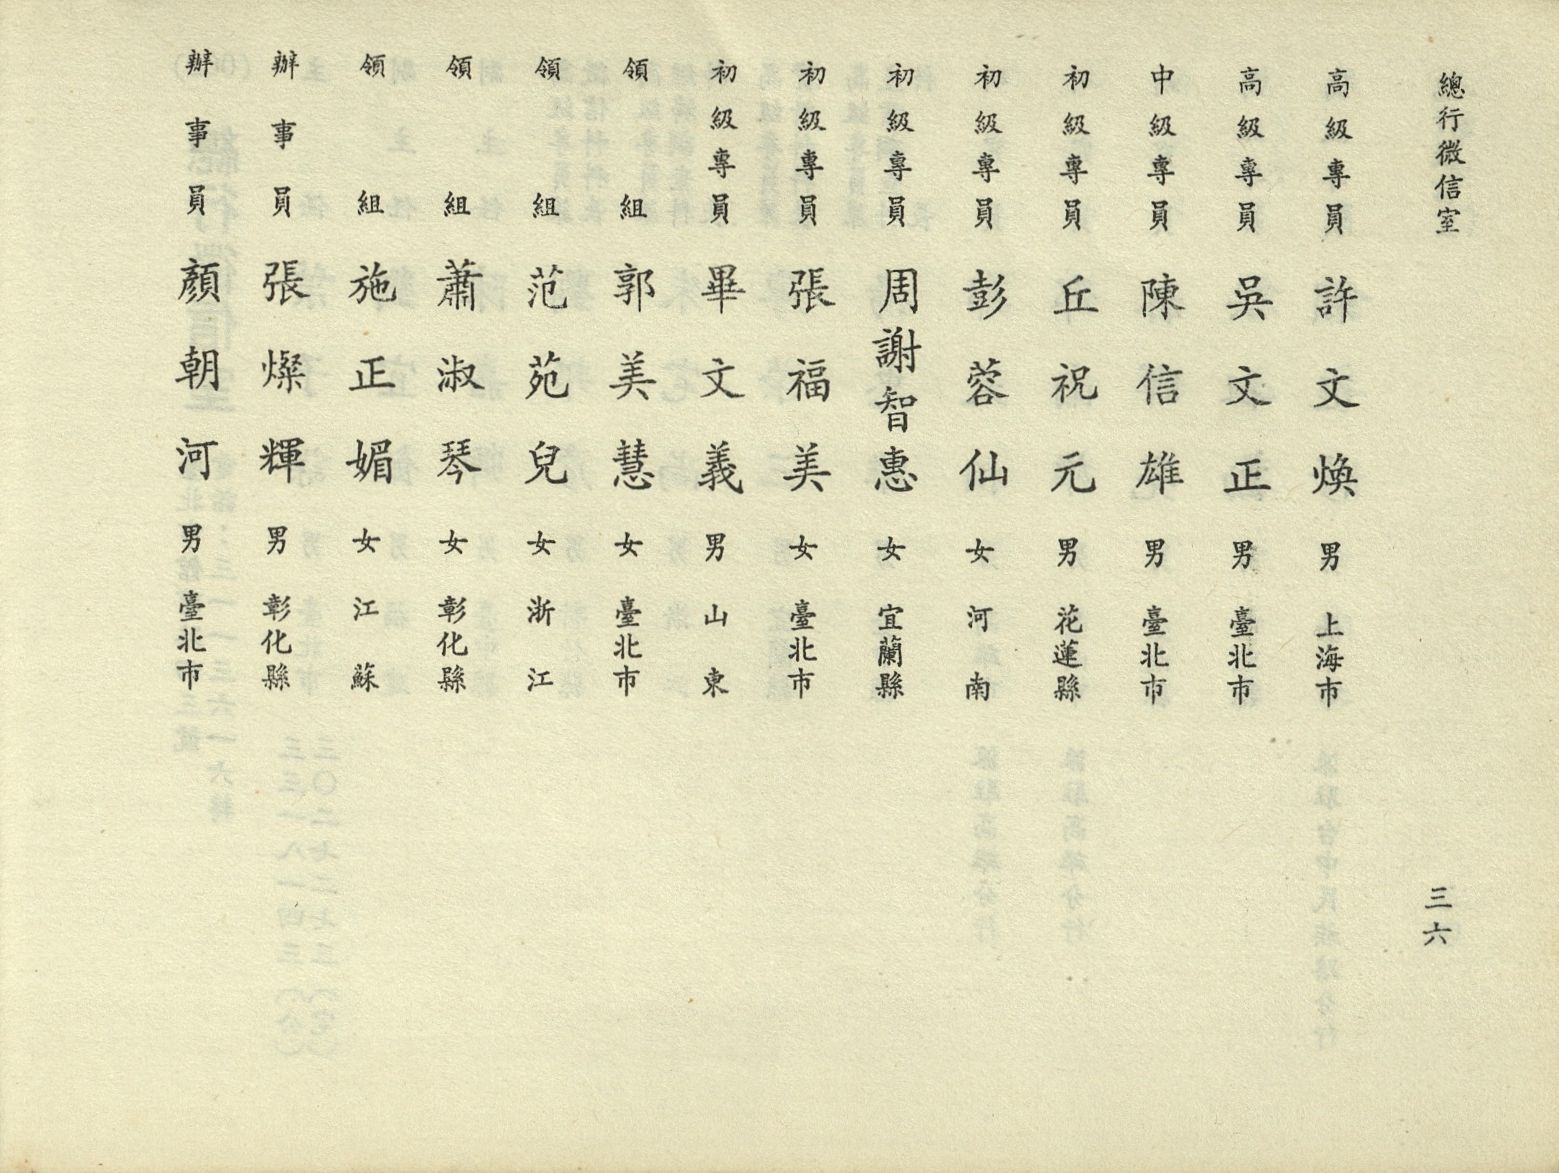 總行徵信室
三六
高級專員 許文煥 男 上海市
高級專員 吳文正 男 臺北市
中級專員 陳信雄 男 臺北市
初級專員 丘祝元 男 花蓮縣
初級專員 彭蓉仙 女 河南
初級專員 周謝智惠 女 宜蘭縣
初級專員 張福美 女 臺北市
初級專員 畢文義 男 山東
領組 郭美慧 女 臺北市
領組 范苑兒 女 浙江
領組 蕭淑琴 女 彰化縣
領組 施正媚 女 江蘇
辦事員 張燦輝 男 彰化縣
辦事員 顏朝河 男 臺北市